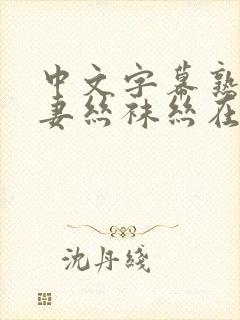 中文字幕熟
妻丝袜丝在
沈丹綫